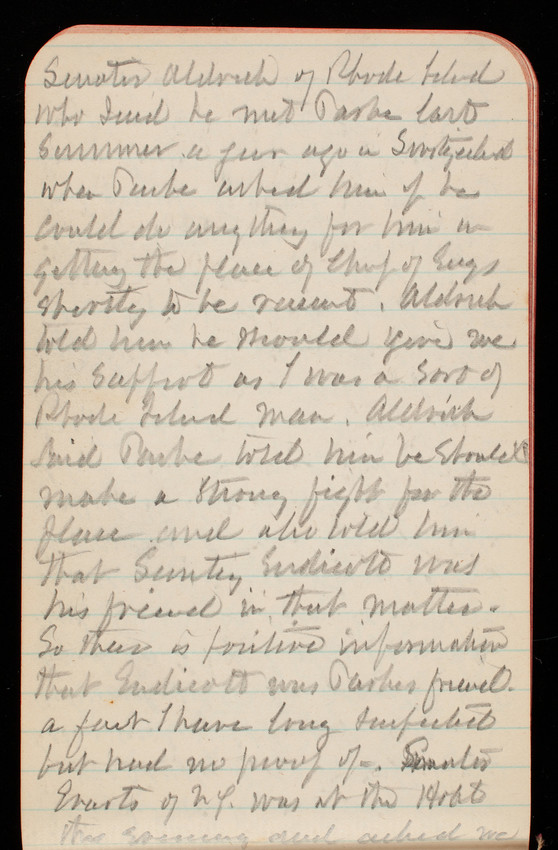 Senator Aldrich of Rhode Island
who said he met Parke last
Summer a year ago in Switzerland
when Parke asked him if he
could do anything for him in
getting the place of Chief of Engs
shortly to be vacant. Aldrich
told him he should give me
his support as I was a sort of
Rhode Island man. Aldrich
said Parke told him he should
make a strong fight for the
place and also told him
that Secrety Endicott was
his friend in that matter.
So there is positive information
that Endicott was Parkes friend.
a fact I have long suspected
but had no proof of. Senator
Evarts of N.Y. was at the
this evening and asked me